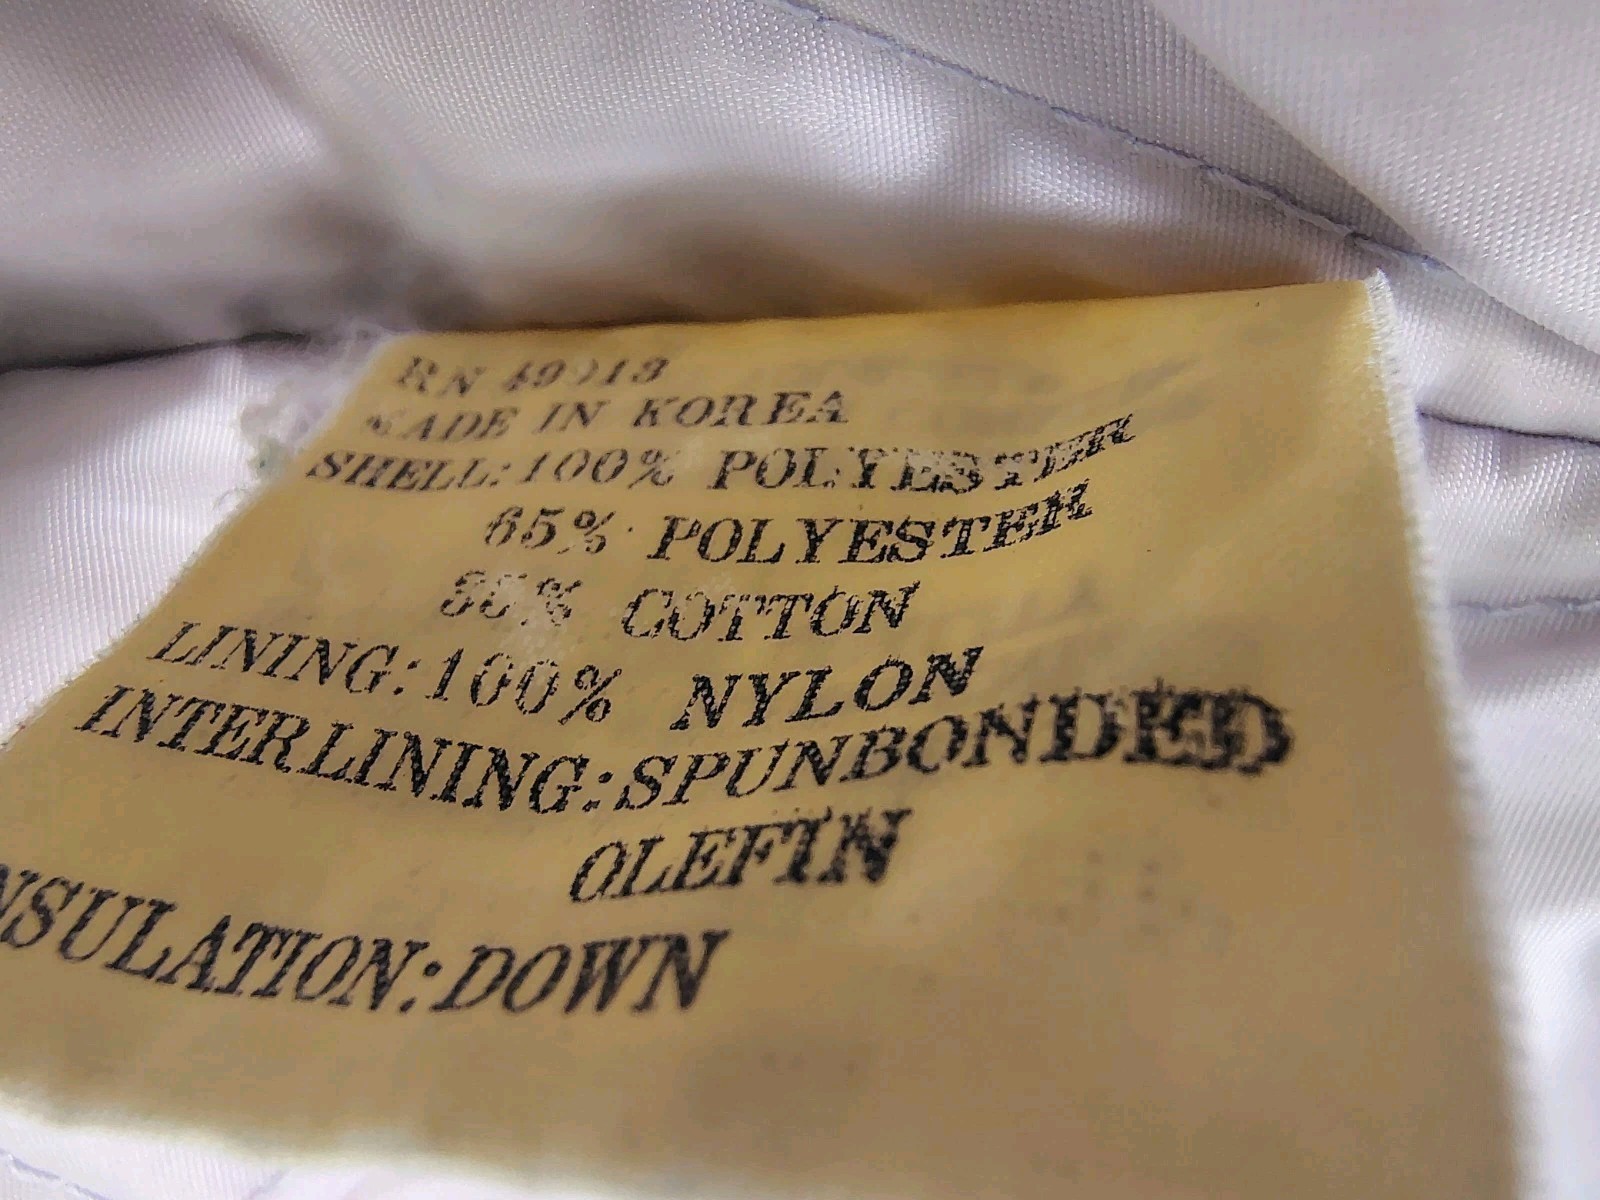 RN
MADE IN KOREA
SHELL: 100% POLYESTER
65% POLYESTER
35% COTTON
LINING: 100% NYLON
INTERLINING: SPUNBONDED
OLEFIN
NSULATION: DOWN